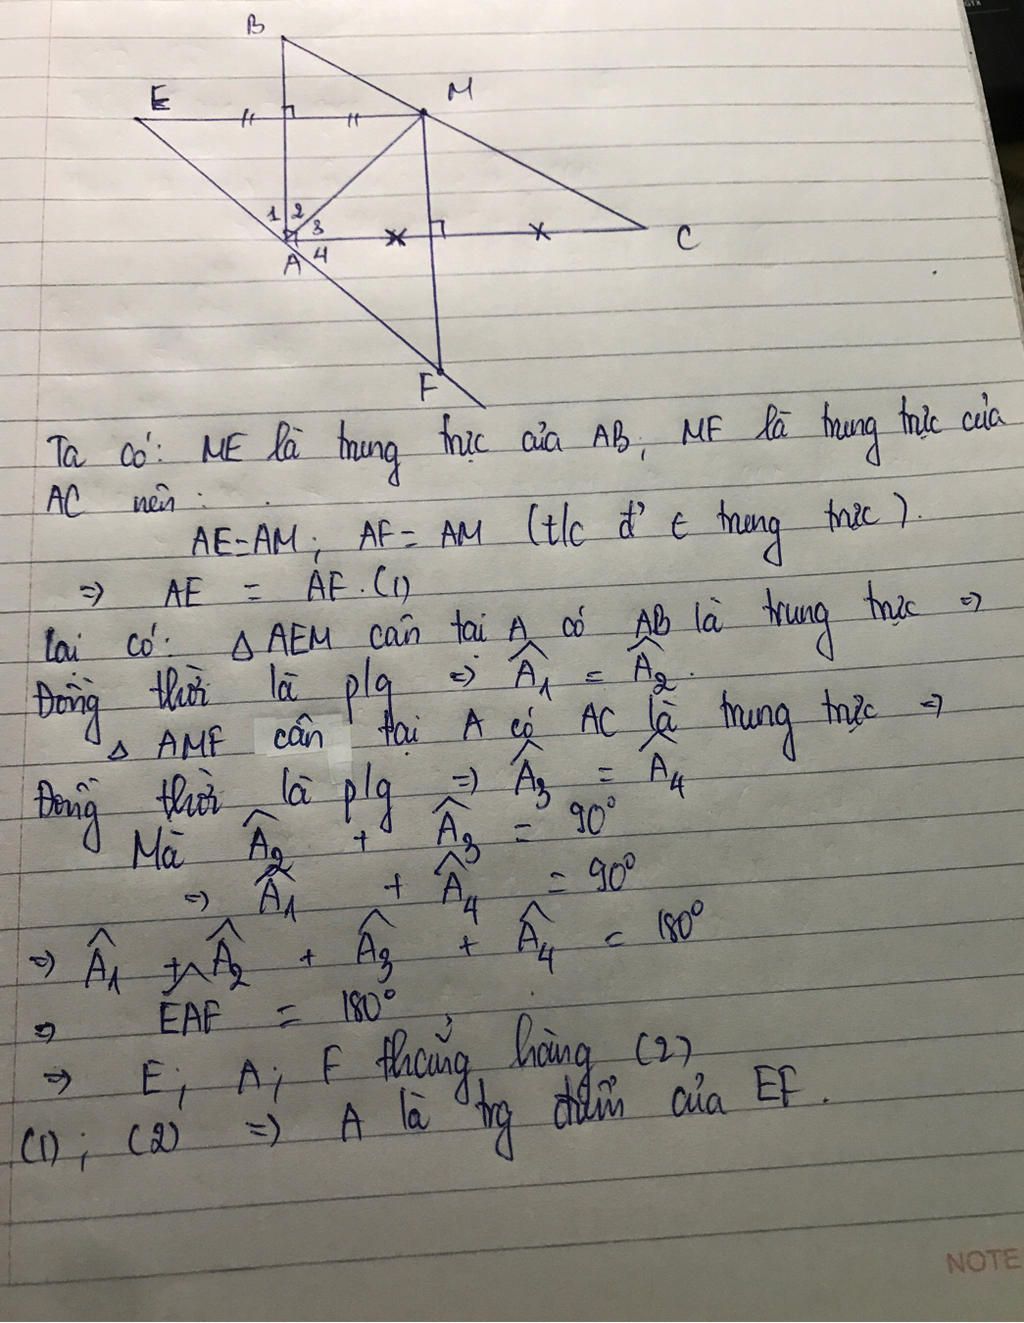 B
E
M
1 2
3
A 4
C
F
Ta có: ME là trung trực của AB, MF là trung trực của
AC nên:
AE=AM; AF= AM (t/c đ' ∈ trung trực).
=> AE = AF.(1)
Lại có: Δ AEM cân tại A có AB là trung trực =>
Đồng thời là p/g => Â1 = Â2.
Δ AMF cân tại A có AC là trung trực =>
Đồng thời là p/g => Â3 = Â4
Mà Â2 + Â3 = 90°
=> Â1 + Â4 = 90°
=> Â1 + Â2 + Â3 + Â4 = 180°
=> EAF = 180°
=> E; A; F thẳng hàng (2)
(1); (2) => A là trg điểm của EF.
NOTE